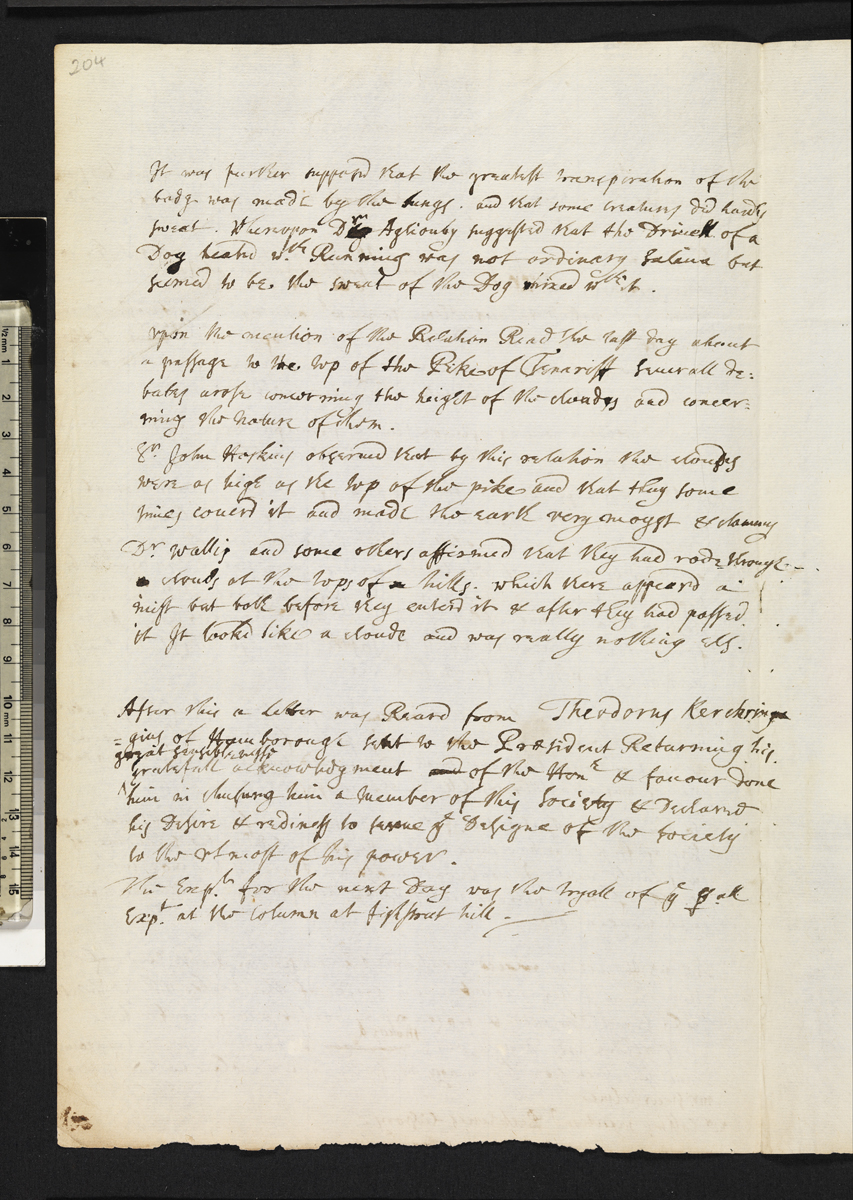 204
It was further supposd that the greatest transpiration of the
body was made by the lungs. and that some creatures did hardly
sweat. Whereupon Dr Aglionby suggested that the Drivell of a
Dog heated wth Running was not ordinary saliva but
seemed to be the sweat of the Dog mixed wth it.
vpon the mention of the Relation Read the last day about
a passage to the top of the Pike of Tenariff severall de:
bates arose concerning the height of the cloudes and concer-
ning the nature of them.
Sr. John Hoskins observed that by this relation the cloudes
were as high as the top of the pike and that they some
times coverd it and made the earth very moyst & clammy
Dr. Wallis and some others affirmed that they had rode through
clouds at the tops of hills. which there appeard a
mist but both before they enterd it & after they had passed
it It lookd like a cloude and was really nothing els.
After this a letter was Reard from Theodorus Kerckrin
=gius of Hamborough sent to the President Returning his
great sensiblenesse
gratefull acknowledgment of the Honr & favour done
him in chusing him a member of this Society & Declared
his Desire & rediness to serve ye Designe of the Society
to the utmost of his power.
The Exp.ts for the next Day was the tryall of ye
Exp.t at the Column at fishstreet hill.
1 2 3 4 5 6 7 8 9 10 11 12 13 14 15